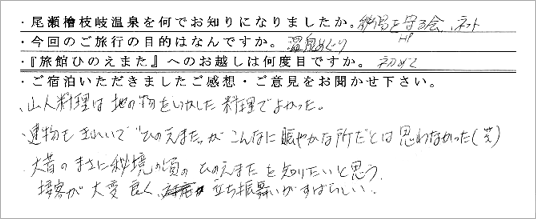 ・尾瀬檜枝岐温泉を何でお知りになりましたか。秘湯を守る会、ネット
HP
・今回のご旅行の目的はなんですか。温泉めぐり
・『旅館ひのえまた』へのお越しは何度目ですか。初めて
・ご宿泊いただきましたご感想・ご意見をお聞かせ下さい。
・山人料理は地の物をいかした料理でよかった。
・建物もきれいで"ひのえまた"がこんなに賑やかな所だとは思わなかった(笑)
大昔のまさに秘境の頃のひのえまたを知りたいと思う。
・接客が大変良く、立ち振舞いがすばらしい。